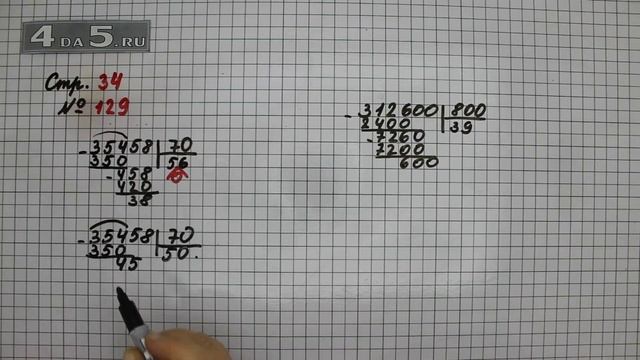 4 DA 5.RU
Стр. 34
№ 129
- 35458 | 70
350 | 56
- 458
420
38
- 35458 | 70
350 | 50.
45
- 312600 | 800
2400 | 39
- 7260
7200
600